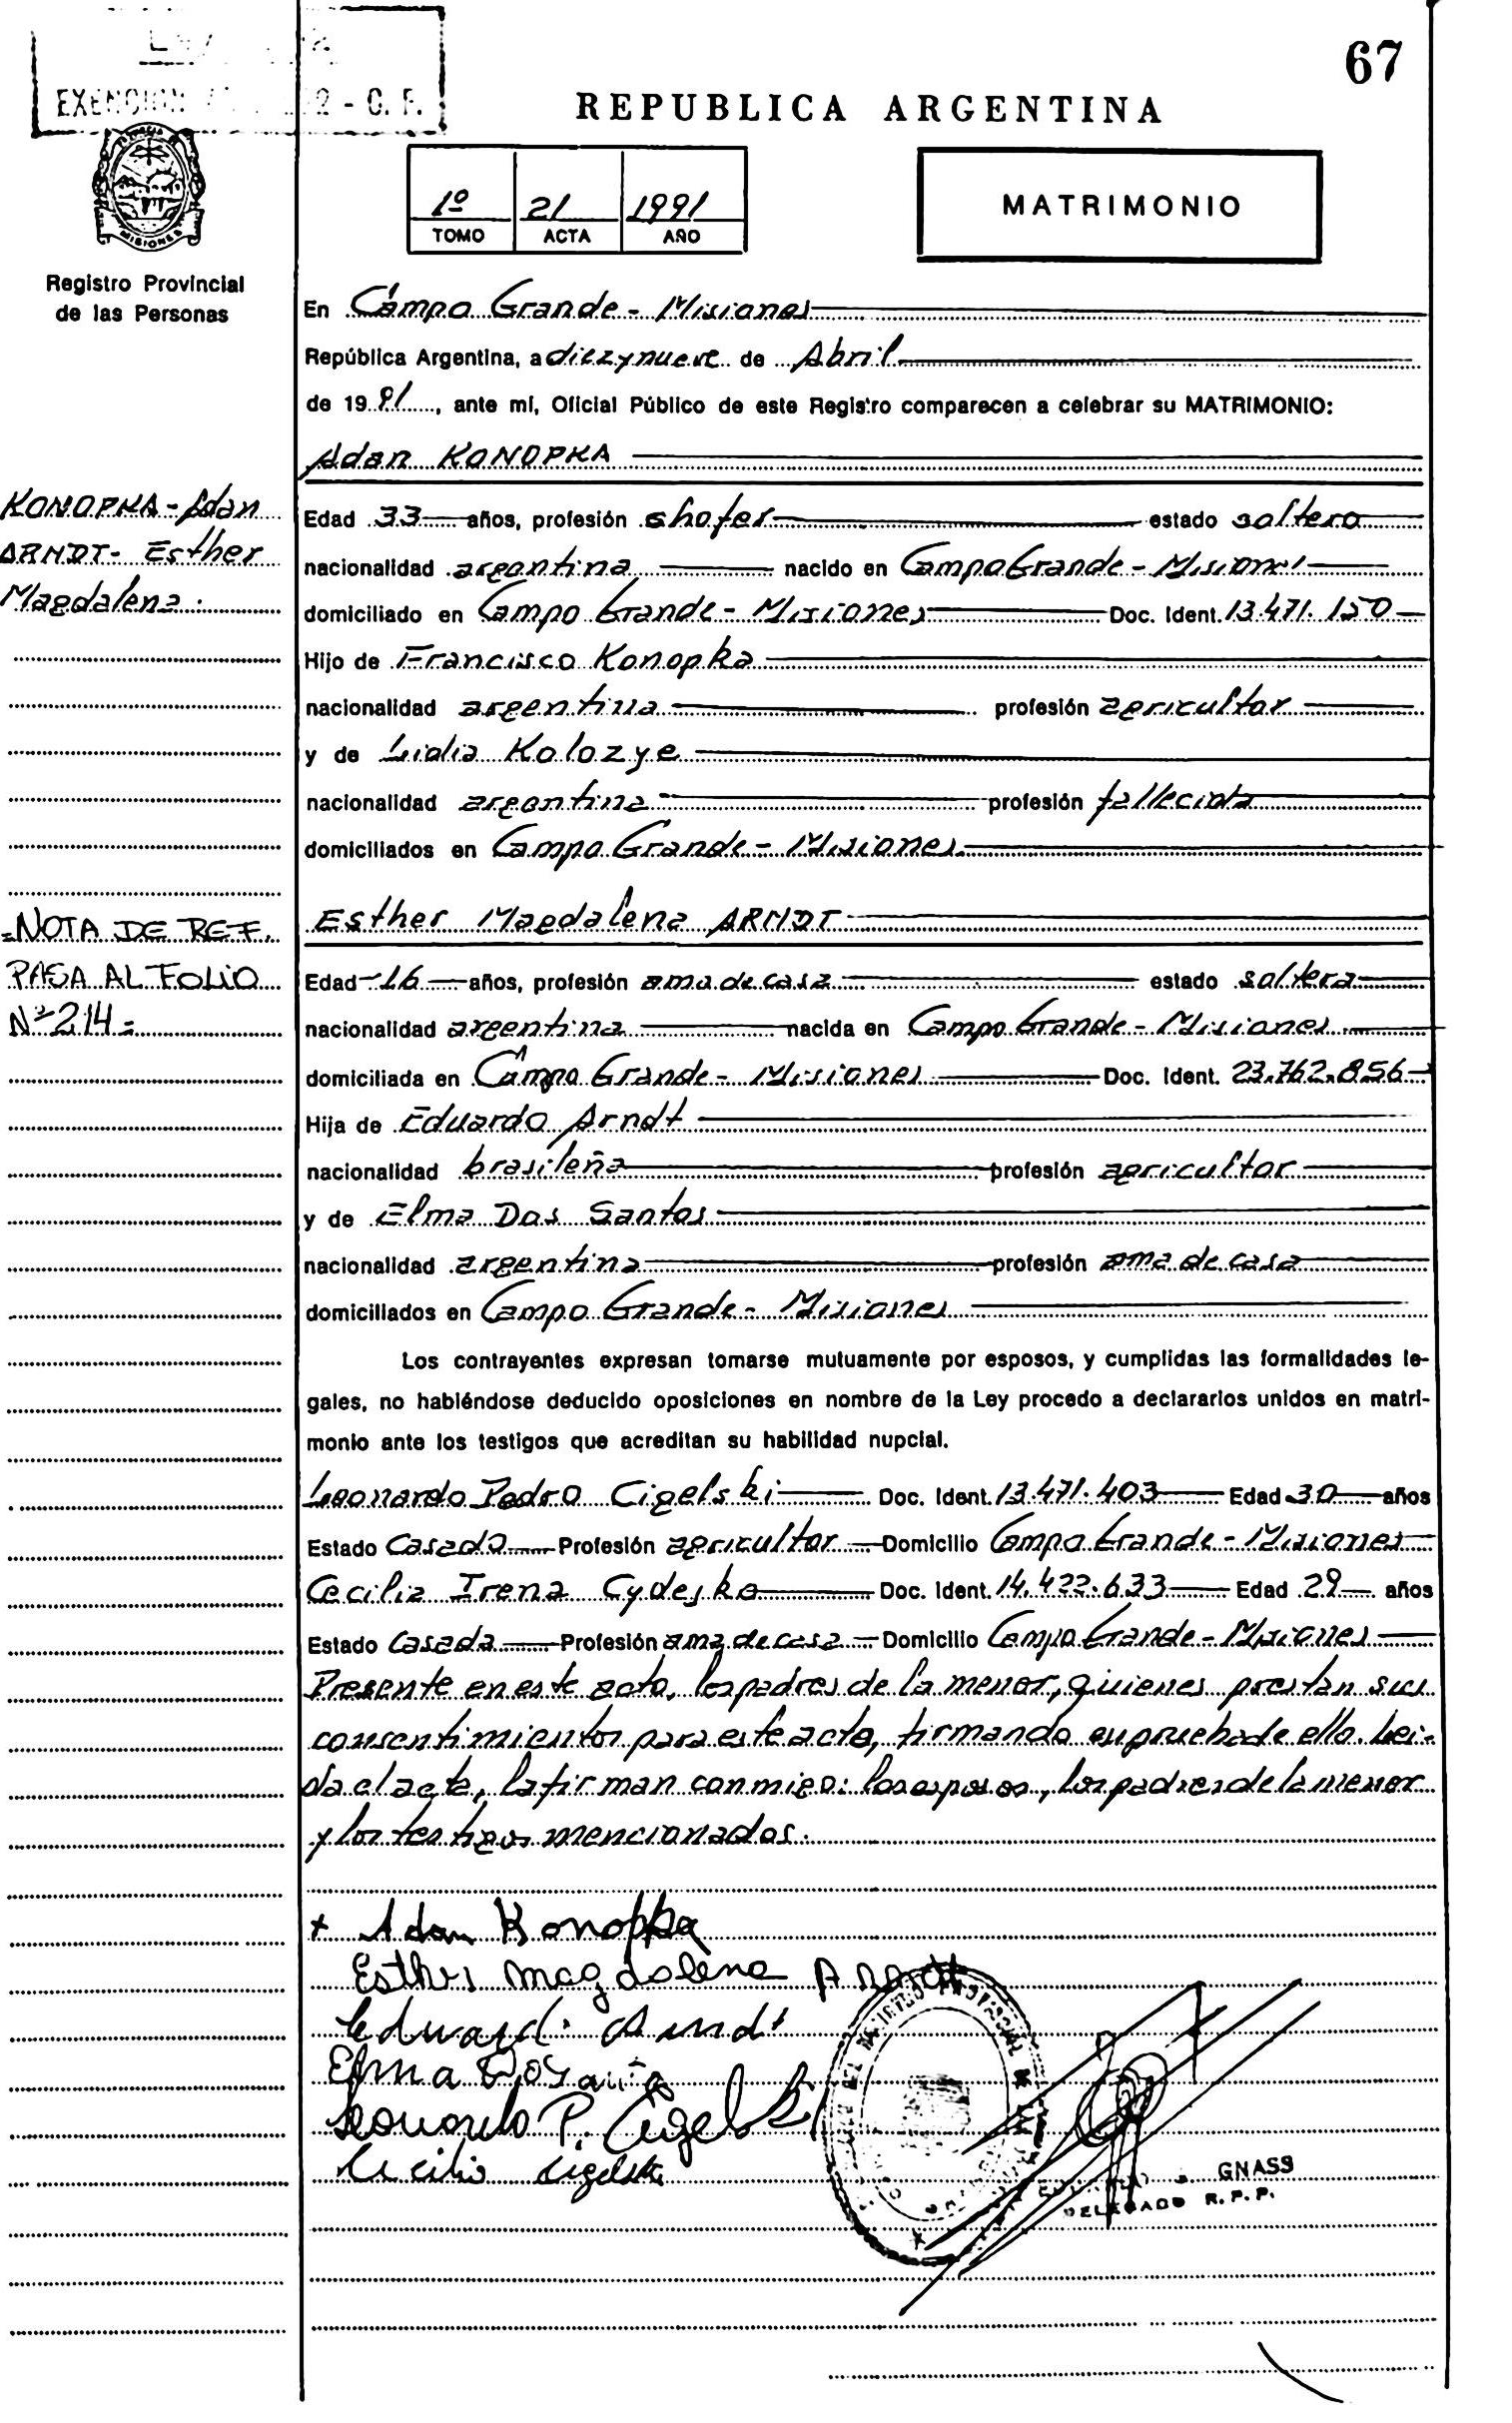 67
EXENCION 2 - C. F.
REPUBLICA ARGENTINA
MISIONES
1º 21 1991
TOMO ACTA AÑO
MATRIMONIO
Registro Provincial
de las Personas
En Campo Grande - Misiones
República Argentina, a diez y nueve de Abril
de 1991, ante mí, Oficial Público de este Registro comparecen a celebrar su MATRIMONIO:
Adan KONOPKA
KONOPKA - Adan
ARNDT - Esther
Magdalena.
Edad 33 años, profesión chofer estado soltero
nacionalidad argentina nacido en Campo Grande - Misiones
domiciliado en Campo Grande - Misiones Doc. Ident. 13.471.150
Hijo de Francisco Konopka
nacionalidad argentina profesión agricultor
y de Lidia Kolozye
nacionalidad argentina profesión fallecida
domiciliados en Campo Grande - Misiones.
Esther Magdalena ARNDT
=NOTA DE REF.
PASA AL FOLIO
Nº 214=
Edad 16 años, profesión ama de casa estado soltera
nacionalidad argentina nacida en Campo Grande - Misiones
domiciliada en Campo Grande - Misiones Doc. Ident. 23.762.856
Hija de Eduardo Arndt
nacionalidad brasileña profesión agricultor
y de Elma Dos Santos
nacionalidad argentina profesión ama de casa
domiciliados en Campo Grande - Misiones
Los contrayentes expresan tomarse mutuamente por esposos, y cumplidas las formalidades le-
gales, no habiéndose deducido oposiciones en nombre de la Ley procedo a declararlos unidos en matri-
monio ante los testigos que acreditan su habilidad nupcial.
Leonardo Pedro Cigelski Doc. Ident. 13.471.403 Edad 30 años
Estado Casado Profesión agricultor Domicilio Campo Grande - Misiones
Cecilia Irena Cydesko Doc. Ident. 14.422.633 Edad 29 años
Estado Casada Profesión ama de casa Domicilio Campo Grande - Misiones
Presente en este acto, los padres de la menor, quienes prestan sus
consentimientos para este acto, firmando en prueba de ello. Lei-
da el acta, la firman conmigo: los esposos, los padres de la menor
y los testigos mencionados.
+ Adan Konopka
Esther Magdalena Arndt
Eduardo Arndt
Elma Dos
Leonardo P. Cigelski
Cecilia Cigelski
GNASS
DELEGADO R. P. P.